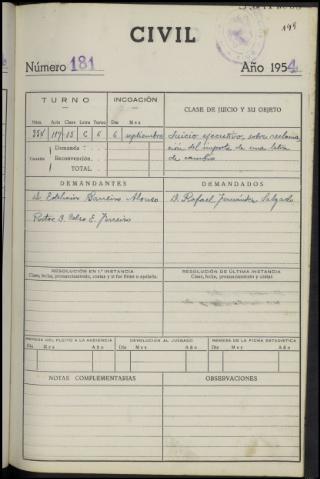 199
CIVIL
Número 181 Año 1954
TURNO INCOACIÓN CLASE DE JUICIO Y SU OBJETO
Núm. Auto Clase Letra Turno Día Mes
117 13 C 6 6 septiembre Juicio ejecutivo, sobre reclama-
ción del importe de una letra
de cambio
Demanda
Cuantía Reconvención
TOTAL
DEMANDANTES DEMANDADOS
D. Barreiro Alonso D. Rafael Fernández Salgado
D. E.
RESOLUCIÓN EN 1.ª INSTANCIA RESOLUCIÓN DE ÚLTIMA INSTANCIA
Clase, fecha, pronunciamiento, costas y si fue firme o apelada. Clase, fecha, pronunciamiento y costas
REMESA DEL PLEITO A LA AUDIENCIA DEVOLUCIÓN AL JUZGADO REMESA DE LA FICHA ESTADÍSTICA
Día Mes Día Mes Día Mes
NOTAS COMPLEMENTARIAS OBSERVACIONES